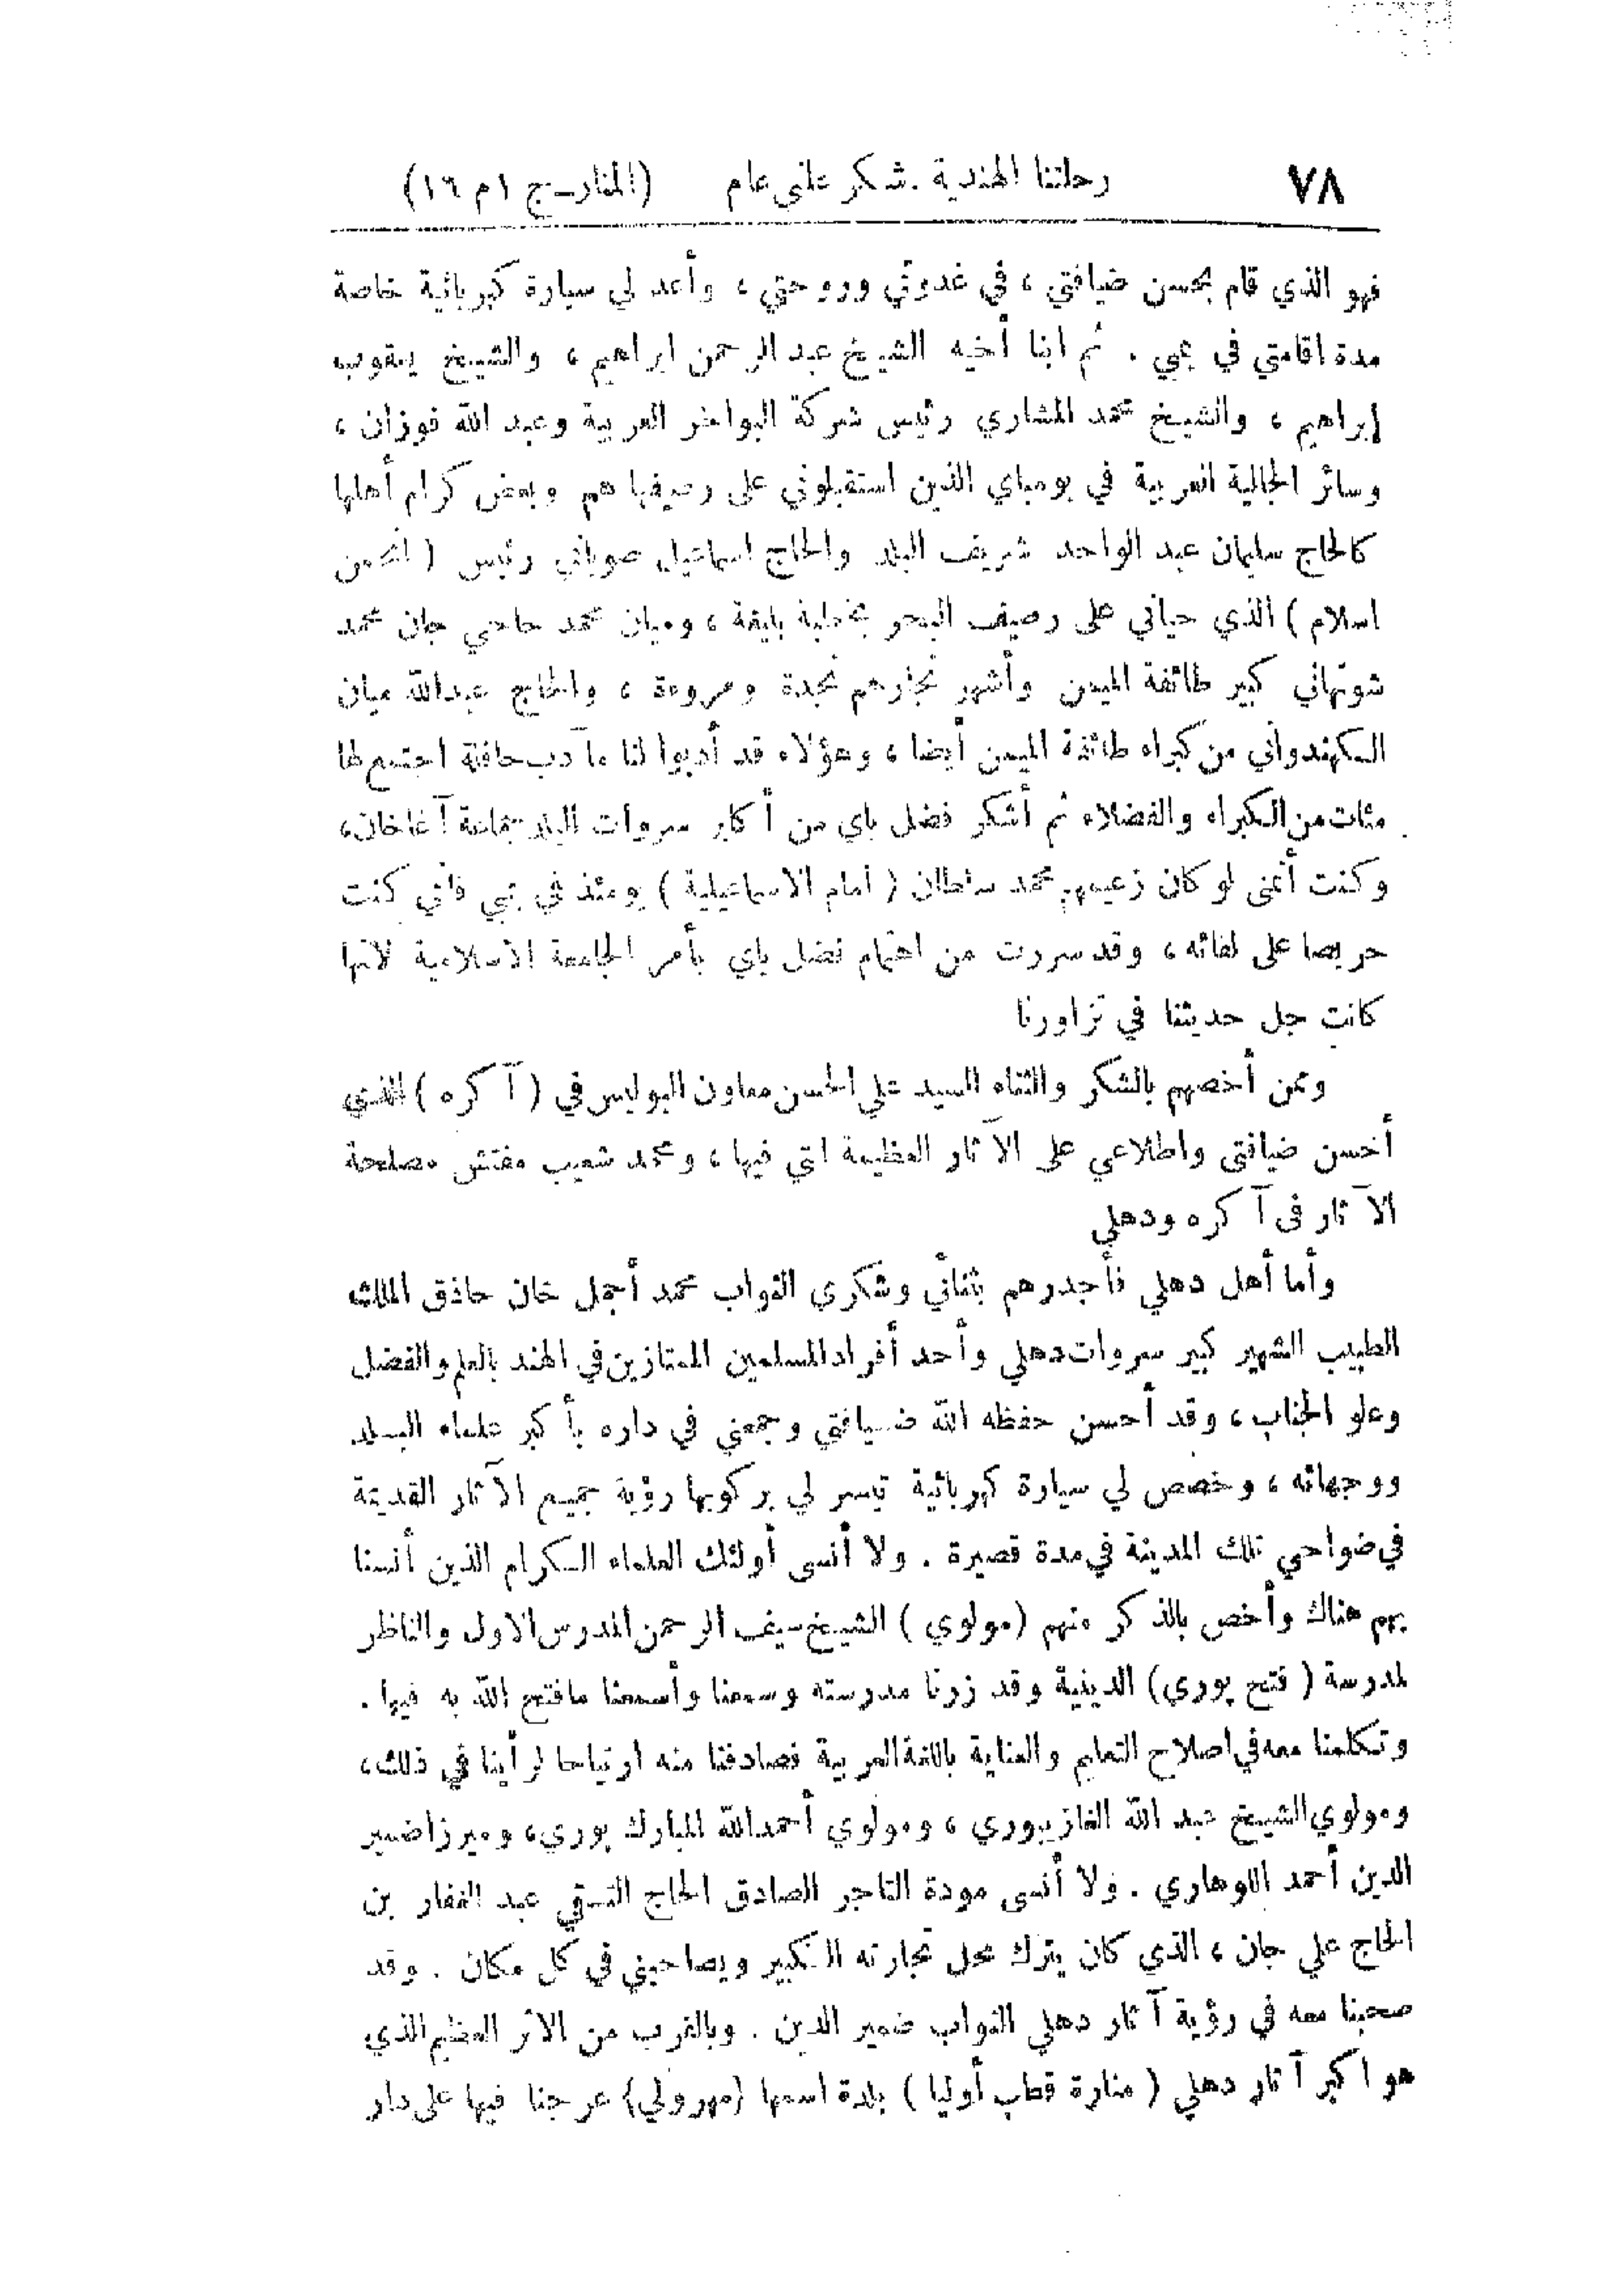 ٧٨ رحلتنا الهندية . شكر على عام (المنار ـ ج ١ م ١٦)
فهو الذي قام بحسن ضيافتي ، في غدوتي وروحتي ، وأعد لي سيارة كهربائية خاصة
مدة اقامتي في بمبي . ثم ابنا أخيه الشيخ عبد الرحمن ابراهيم ، والشيخ يعقوب
إبراهيم ، والشيخ محمد المشاري رئيس شركة البواخر العربية وعبد الله فوزان ،
وسائر الجالية العربية في بومباي الذين استقبلوني على رصيفها هم وبعض كرام أهلها
كالحاج سليمان عبد الواحد شريف البلد والحاج اسماعيل صوباني رئيس ( انجمن
اسلام ) الذي حياني على رصيف البحر بخطبة بليغة ، وميان محمد حاجي جان محمد
شوتهاني كبير طائفة الميمن وأشهر تجارهم نجدة ومروءة ، والحاج عبدالله ميان
الكهندواني من كبراء طائفة الميمن أيضا ، وهؤلاء قد أدبوا لنا مآدب حافلة اجتمع لها
مئات من الكبراء والفضلاء ثم أشكر فضل باي من أكابر سروات البلد جماعة آغاخان،
وكنت أتمنى لو كان زعيمهم محمد سلطان ( امام الاسماعيلية ) يومئذ في بمبي فاني كنت
حريصا على لقائه ، وقد سررت من اهتمام فضل باي بأمر الجامعة الاسلامية لانها
كانت جل حديثنا في تزاورنا
وممن أخصهم بالشكر والثناء السيد علي الحسن معاون البوليس في ( آكره ) الذي
أحسن ضيافتى واطلاعي على الآثار العظيمة التي فيها ، ومحمد شعيب مفتش مصلحة
الآثار فى آكره ودهلي
وأما أهل دهلي فأجدرهم بثنائي وشكري النواب محمد أجمل خان حاذق الملك
الطبيب الشهير كبير سروات دهلي وأحد أفراد المسلمين الممتازين في الهند بالعلم والفضل
وعلو الجناب ، وقد أحسن حفظه الله ضيافتي وجمعني في داره بأكبر علماء البلد
ووجهائه ، وخصص لي سيارة كهربائية تيسر لي بركوبها رؤية جميع الآثار القديمة
في ضواحي تلك المدينة في مدة قصيرة . ولا أنسى أولئك العلماء الكرام الذين أنسنا
بهم هناك وأخص بالذكر منهم (مولوي ) الشيخ سيف الرحمن المدرس الاول والناظر
لمدرسة ( فتح پوري) الدينية وقد زرنا مدرسته وسمعنا وأسمعنا مافتح الله به فيها .
وتكلمنا معه في اصلاح التعليم والعناية باللغة العربية فصادفنا منه ارتياحا لرأينا في ذلك،
ومولوي الشيخ عبد الله الغازيبوري ، ومولوي أحمدالله المبارك پوري، وميرزا ضمير
الدين أحمد اللوهاري . ولا أنسى مودة التاجر الصادق الحاج التقي عبد الغفار بن
الحاج علي جان ، الذي كان يترك محل تجارته الكبير ويصاحبني في كل مكان . وقد
صحبنا معه في رؤية آثار دهلي النواب ضمير الدين . وبالقرب من الاثر العظيم الذي
هو اكبر آثار دهلي ( منارة قطب أوليا ) بلدة اسمها (مهرولي) عرجنا فيها على دار